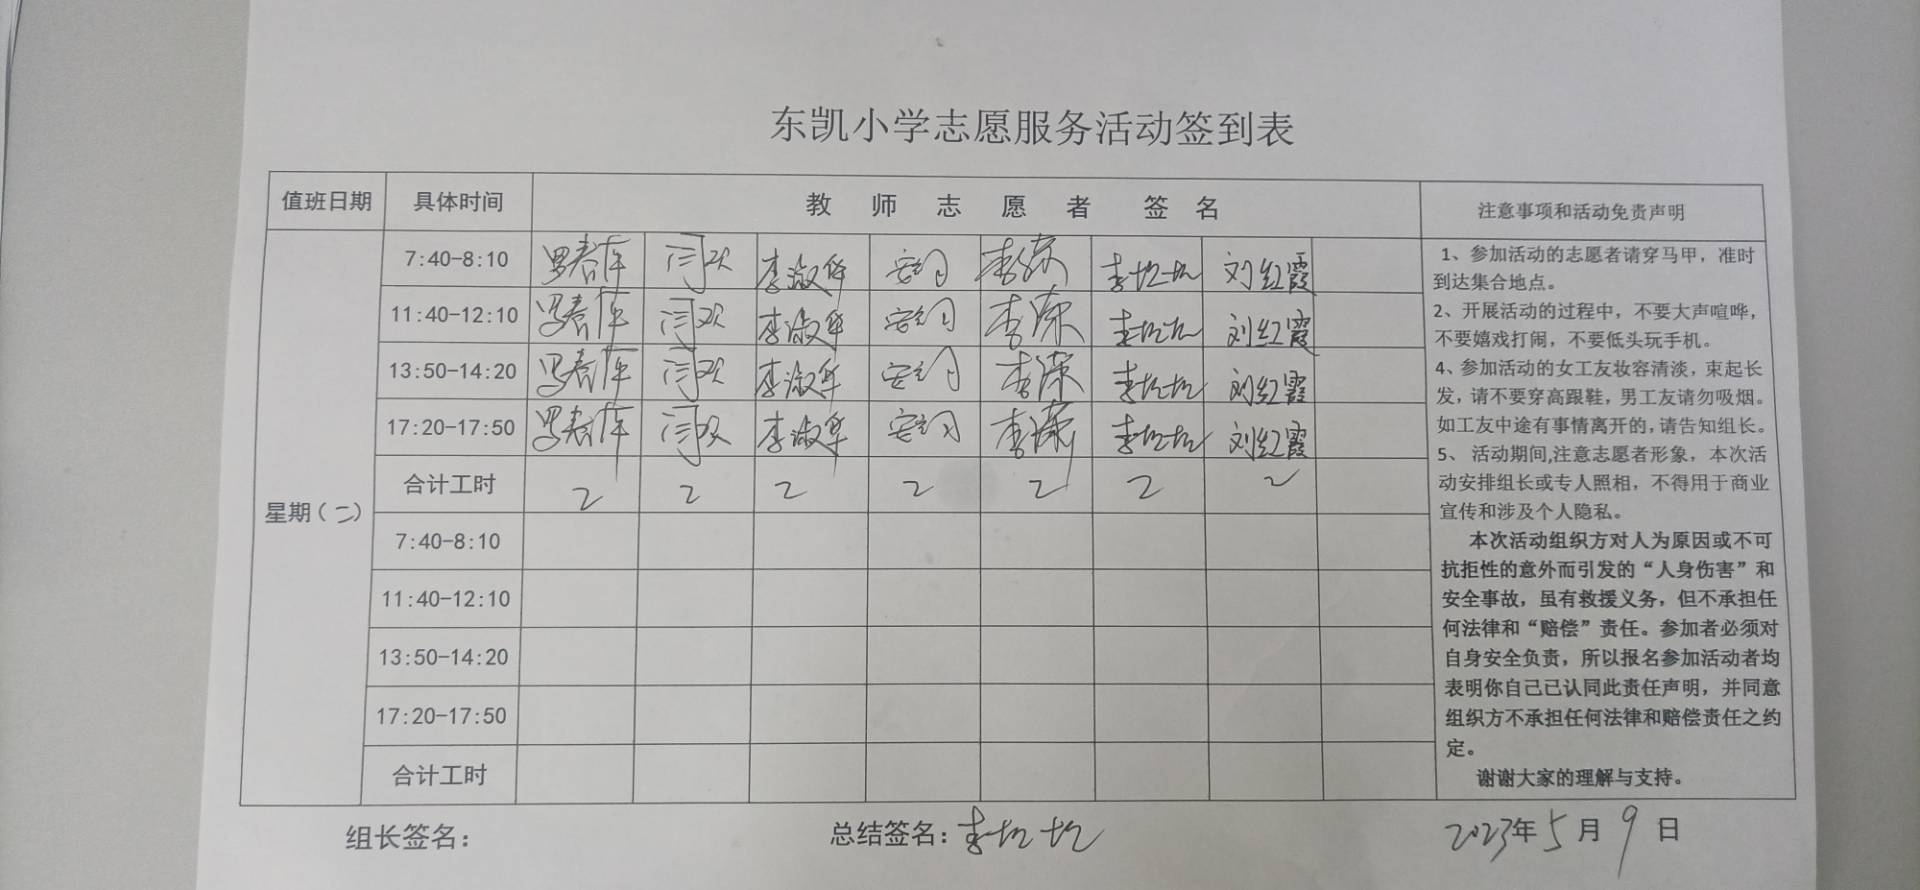 东凯小学志愿服务活动签到表
值班日期 具体时间 教师志愿者 签名 注意事项和活动免责声明
星期(二)
7:40-8:10 罗春库 闫欢 李淑华 安钧 李荣 李圪圪 刘红霞
11:40-12:10 罗春库 闫欢 李淑华 李荣 刘红霞
13:50-14:20 罗春库 闫欢 李淑华 李荣 刘红霞
17:20-17:50 罗春库 闫欢 李淑华 李荣 刘红霞
合计工时 2 2 2 2 2 2 2
7:40-8:10
11:40-12:10
13:50-14:20
17:20-17:50
合计工时
1、参加活动的志愿者请穿马甲，准时
到达集合地点。
2、开展活动的过程中，不要大声喧哗，
不要嬉戏打闹，不要低头玩手机。
4、参加活动的女工友妆容清淡，束起长
发，请不要穿高跟鞋，男工友请勿吸烟。
如工友中途有事情离开的，请告知组长。
5、 活动期间,注意志愿者形象，本次活
动安排组长或专人照相，不得用于商业
宣传和涉及个人隐私。
本次活动组织方对人为原因或不可
抗拒性的意外而引发的“人身伤害”和
安全事故，虽有救援义务，但不承担任
何法律和“赔偿”责任。参加者必须对
自身安全负责，所以报名参加活动者均
表明你自己已认同此责任声明，并同意
组织方不承担任何法律和赔偿责任之约
定。
谢谢大家的理解与支持。
组长签名： 总结签名： 2023年5月9日